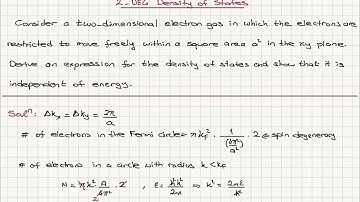 2-DEG Density of States
Consider a two-dimensional electron gas in which the electrons are
restricted to move freely within a square area a² in the xy plane.
Derive an expression for the density of states and show that it is
independent of energy.
Solⁿ: Δkx = Δky = 2π/a
# of electrons in the Fermi circle = π kF² · 1/(4π²/a²) · 2 ← spin degeneracy
# of electrons in a circle with radius k < kF
N = πk² · A/4π² · 2 , E = ħ²k²/2m ⇒ k² = 2mE/ħ²